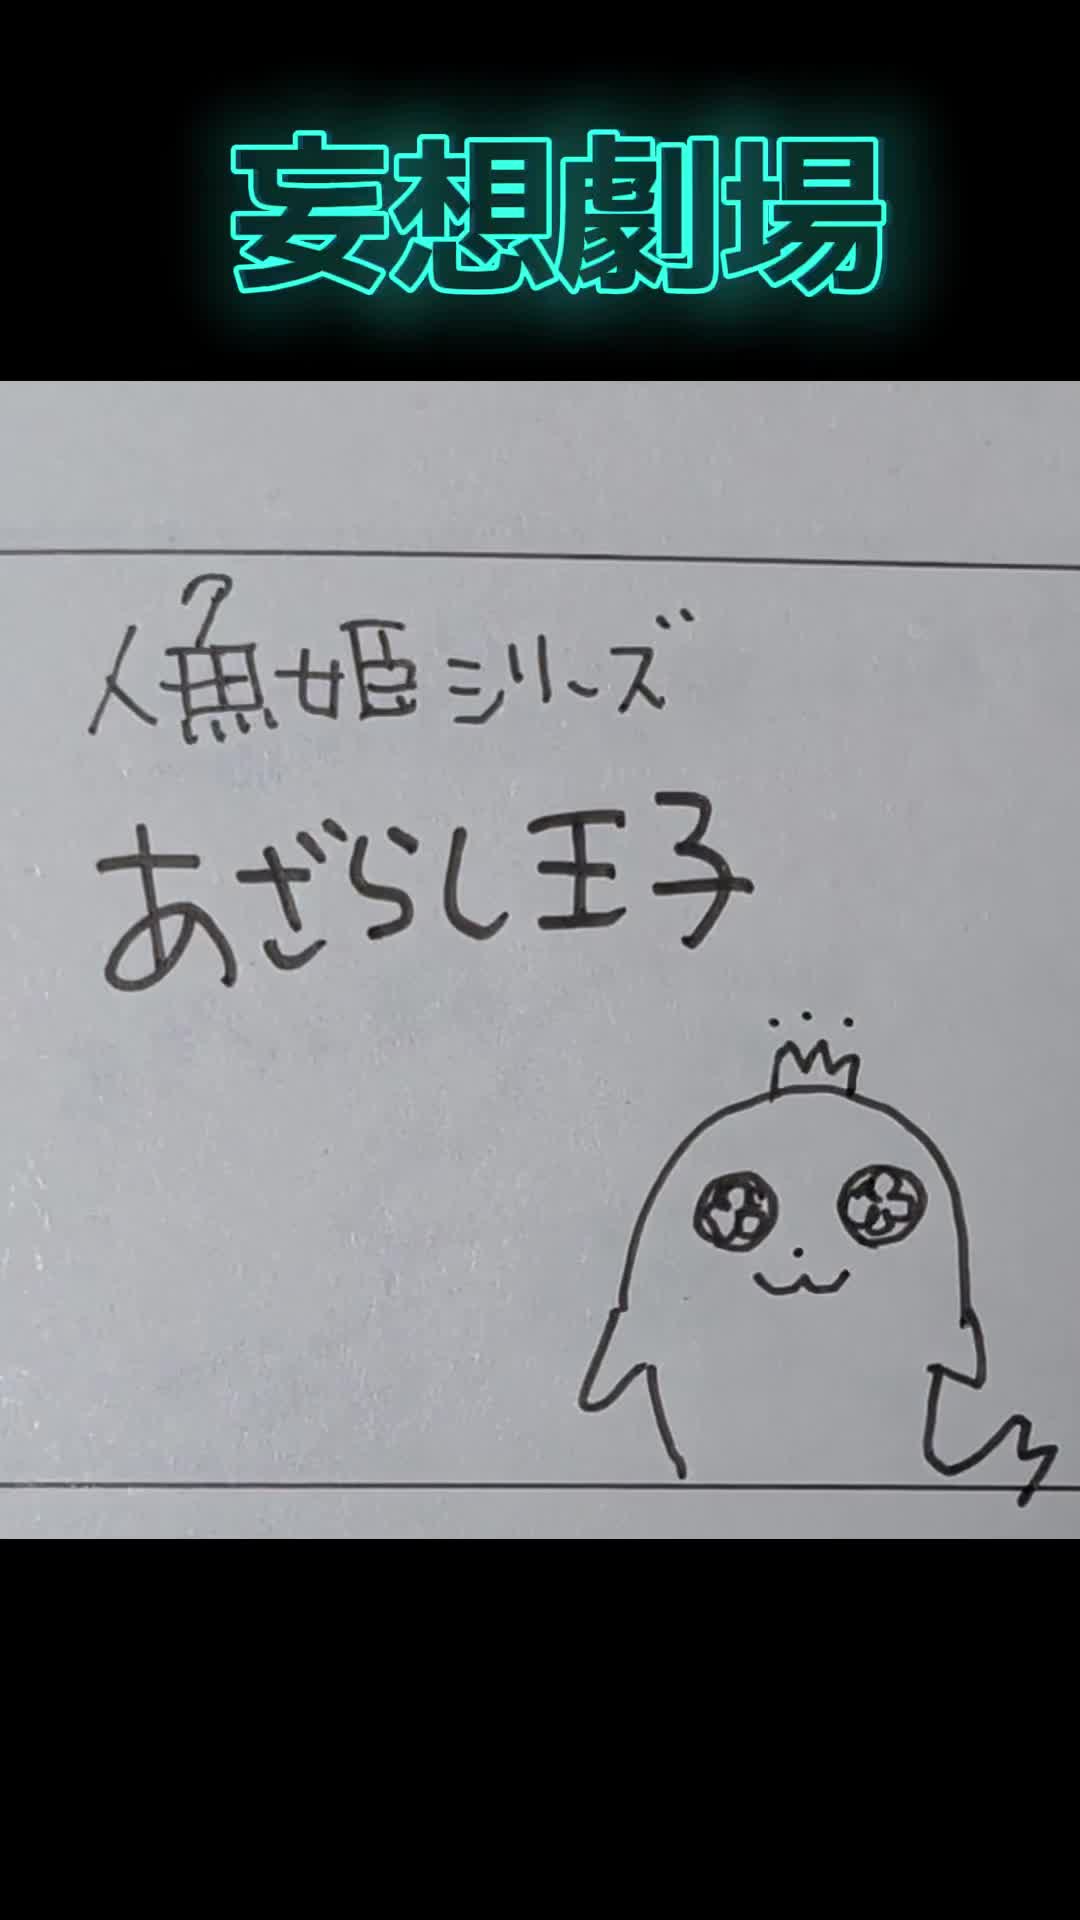 妄想劇場
人魚姫シリーズ
あざらし王子